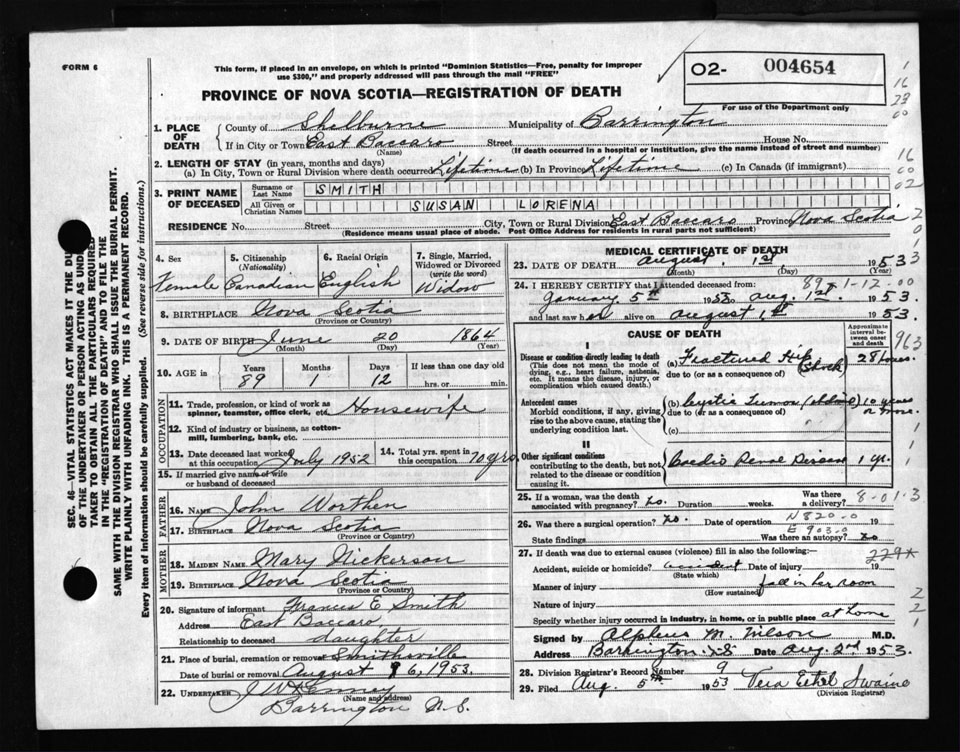 FORM 6
This form, if placed in an envelope, on which is printed "Dominion Statistics—Free, penalty for improper
use $300," and properly addressed will pass through the mail "FREE"
02- 004654
PROVINCE OF NOVA SCOTIA—REGISTRATION OF DEATH
For use of the Department only
1 16 23 00
1. PLACE OF DEATH County of Shelburne Municipality of Barrington
If in City or Town East Baccaro Street House No.
(Name) (If death occurred in a hospital or institution, give the name instead of street and number)
2. LENGTH OF STAY (in years, months and days)
(a) In City, Town or Rural Division where death occurred Lifetime (b) In Province Lifetime (c) In Canada (if immigrant)
16 00 02
3. PRINT NAME OF DECEASED Surname or Last Name SMITH
All Given or Christian Names SUSAN LORENA
RESIDENCE No. Street City, Town or Rural Division East Baccaro Province Nova Scotia
(Residence means usual place of abode. Post Office Address for residents in rural parts not sufficient)
SEC. 46—VITAL STATISTICS ACT MAKES IT THE DU
OF THE UNDERTAKER OR PERSON ACTING AS UNDE
TAKER TO OBTAIN ALL THE PARTICULARS REQUIRED
IN THE "REGISTRATION OF DEATH" AND TO FILE THE
SAME WITH THE DIVISION REGISTRAR WHO SHALL ISSUE THE BURIAL PERMIT.
WRITE PLAINLY WITH UNFADING INK. THIS IS A PERMANENT RECORD.
Every item of information should be carefully supplied. (See reverse side for instructions.)
4. Sex Female
5. Citizenship (Nationality) Canadian
6. Racial Origin English
7. Single, Married, Widowed or Divorced (write the word) Widow
8. BIRTHPLACE Nova Scotia
(Province or Country)
9. DATE OF BIRTH June 20 1864
(Month) (Day) (Year)
10. AGE in Years 89 Months 1 Days 12 If less than one day old hrs. or min.
OCCUPATION
11. Trade, profession, or kind of work as spinner, teamster, office clerk, etc. Housewife
12. Kind of industry or business, as cotton-mill, lumbering, bank, etc.
13. Date deceased last worked at this occupation July 1952
14. Total yrs. spent in this occupation 70 yrs
15. If married give name of wife or husband of deceased
FATHER
16. NAME John Worthen
17. BIRTHPLACE Nova Scotia
(Province or Country)
MOTHER
18. MAIDEN NAME Mary Nickerson
19. BIRTHPLACE Nova Scotia
(Province or Country)
20. Signature of informant Frances E Smith
Address East Baccaro
Relationship to deceased daughter
21. Place of burial, cremation or removal Smithsville
Date of burial or removal August 6, 1953.
22. UNDERTAKER
(Name and address)
Barrington N.S.
MEDICAL CERTIFICATE OF DEATH
23. DATE OF DEATH August 1st 1953
(Month) (Day) (Year)
89 1-12-00
24. I HEREBY CERTIFY that I attended deceased from
January 5th 1953 to Aug. 1st 1953.
and last saw her alive on August 1st 1953.
CAUSE OF DEATH
Approximate interval between onset and death
963
I
Disease or condition directly leading to death (a) Fractured Hip (Shock)
(This does not mean the mode of dying, e.g., heart failure, asthenia, etc. It means the disease, injury, or complication which caused death.)
due to (or as a consequence of)
Antecedent causes
Morbid conditions, if any, giving rise to the above cause, stating the underlying condition last.
(b) Cystic Tumor 10 years or more.
due to (or as a consequence of)
(c)
II
Other significant conditions
contributing to the death, but not related to the disease or condition causing it.
Cardio Renal Disease 1 yr.
25. If a woman, was the death associated with pregnancy? No. Duration weeks. Was there a delivery?
8-01-3
26. Was there a surgical operation? No. Date of operation 19
N820-0
E 903-0
State findings Was there an autopsy? No
27. If death was due to external causes (violence) fill in also the following:—
Accident, suicide or homicide? accident Date of injury 19
(State which)
Manner of injury fall in her room
(How sustained)
Nature of injury
Specify whether injury occurred in industry, in home, or in public place at home
Signed by Alpheus M. Wilson M.D.
Address Barrington N.S Date Aug. 2nd 1953.
28. Division Registrar's Record Number 9
29. Filed Aug. 5th 1953 Vera Ethel Swaine
(Division Registrar)